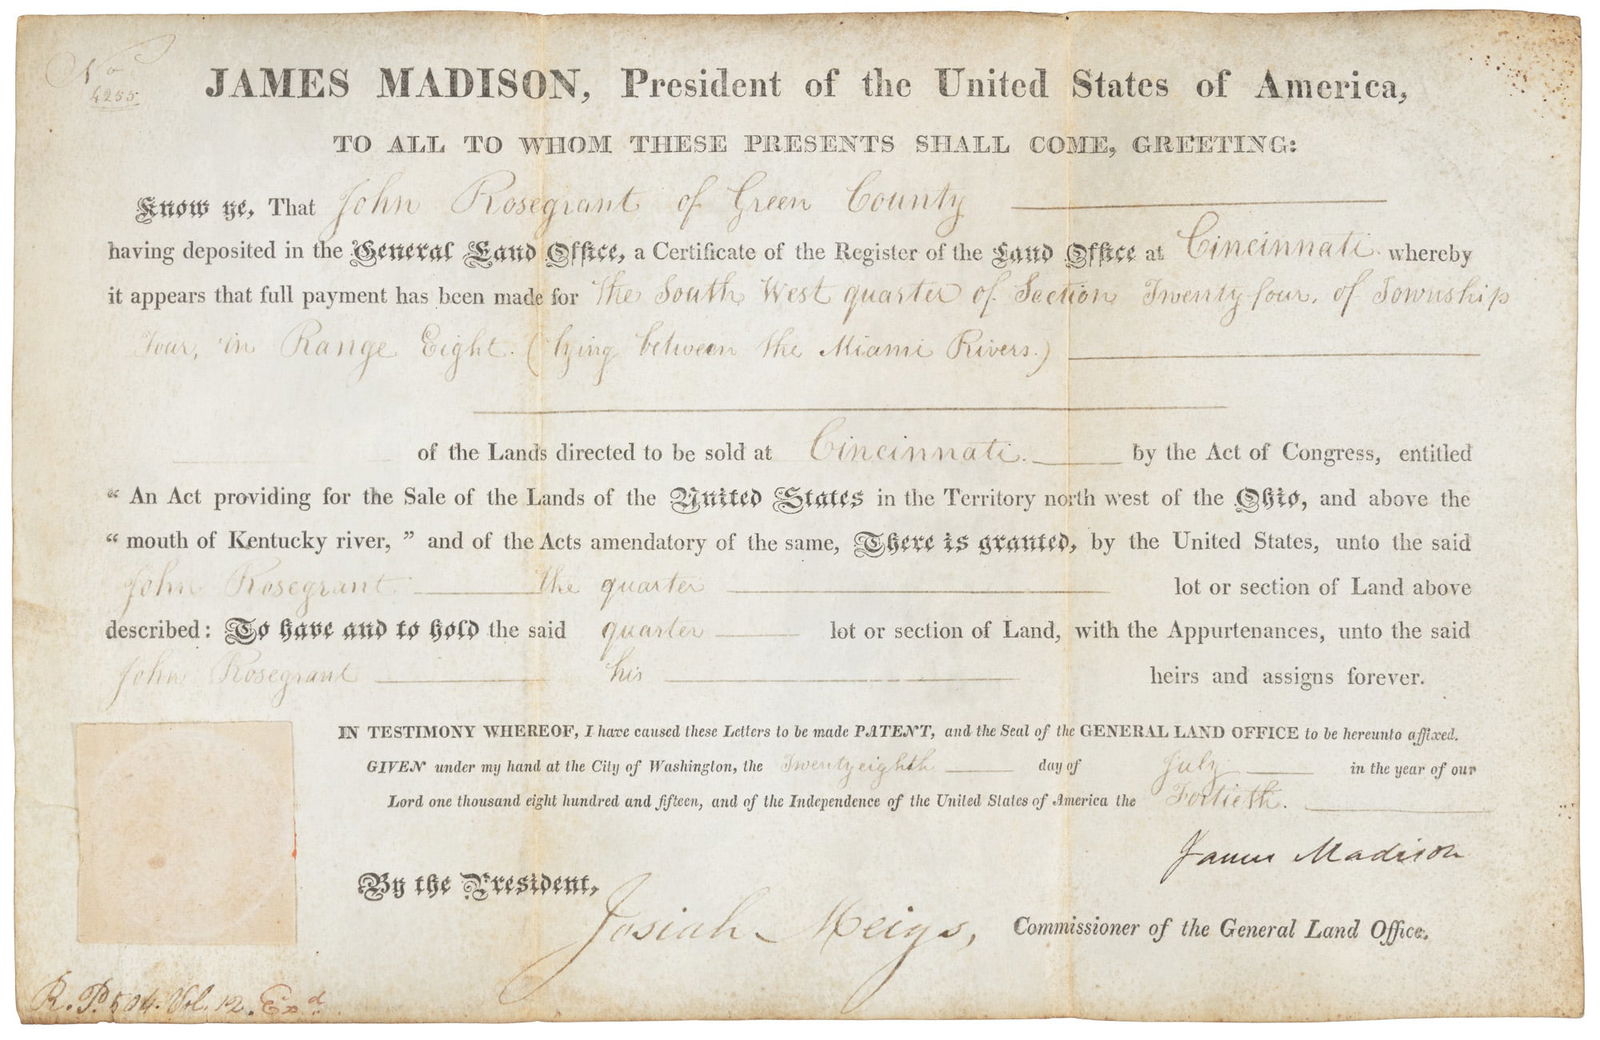 No
4255
JAMES MADISON, President of the United States of America,
TO ALL TO WHOM THESE PRESENTS SHALL COME, GREETING:
Know ye, That John Rosegrant of Green County
having deposited in the General Land Office, a Certificate of the Register of the Land Office at Cincinnati whereby
it appears that full payment has been made for the South West quarter of Section Twenty four, of Township
Four, in Range Eight. (lying between the Miami Rivers.)
of the Lands directed to be sold at Cincinnati. by the Act of Congress, entitled
“ An Act providing for the Sale of the Lands of the United States in the Territory north west of the Ohio, and above the
“ mouth of Kentucky river, ” and of the Acts amendatory of the same, There is granted, by the United States, unto the said
John Rosegrant the quarter lot or section of Land above
described: To have and to hold the said quarter lot or section of Land, with the Appurtenances, unto the said
John Rosegrant his heirs and assigns forever.
IN TESTIMONY WHEREOF, I have caused these Letters to be made PATENT, and the Seal of the GENERAL LAND OFFICE to be hereunto affixed.
GIVEN under my hand at the City of Washington, the Twenty eighth day of July in the year of our
Lord one thousand eight hundred and fifteen, and of the Independence of the United States of America the Fortieth.
James Madison
By the President,
Josiah Meigs, Commissioner of the General Land Office.
R. P. 504. Vol. 12. Exd